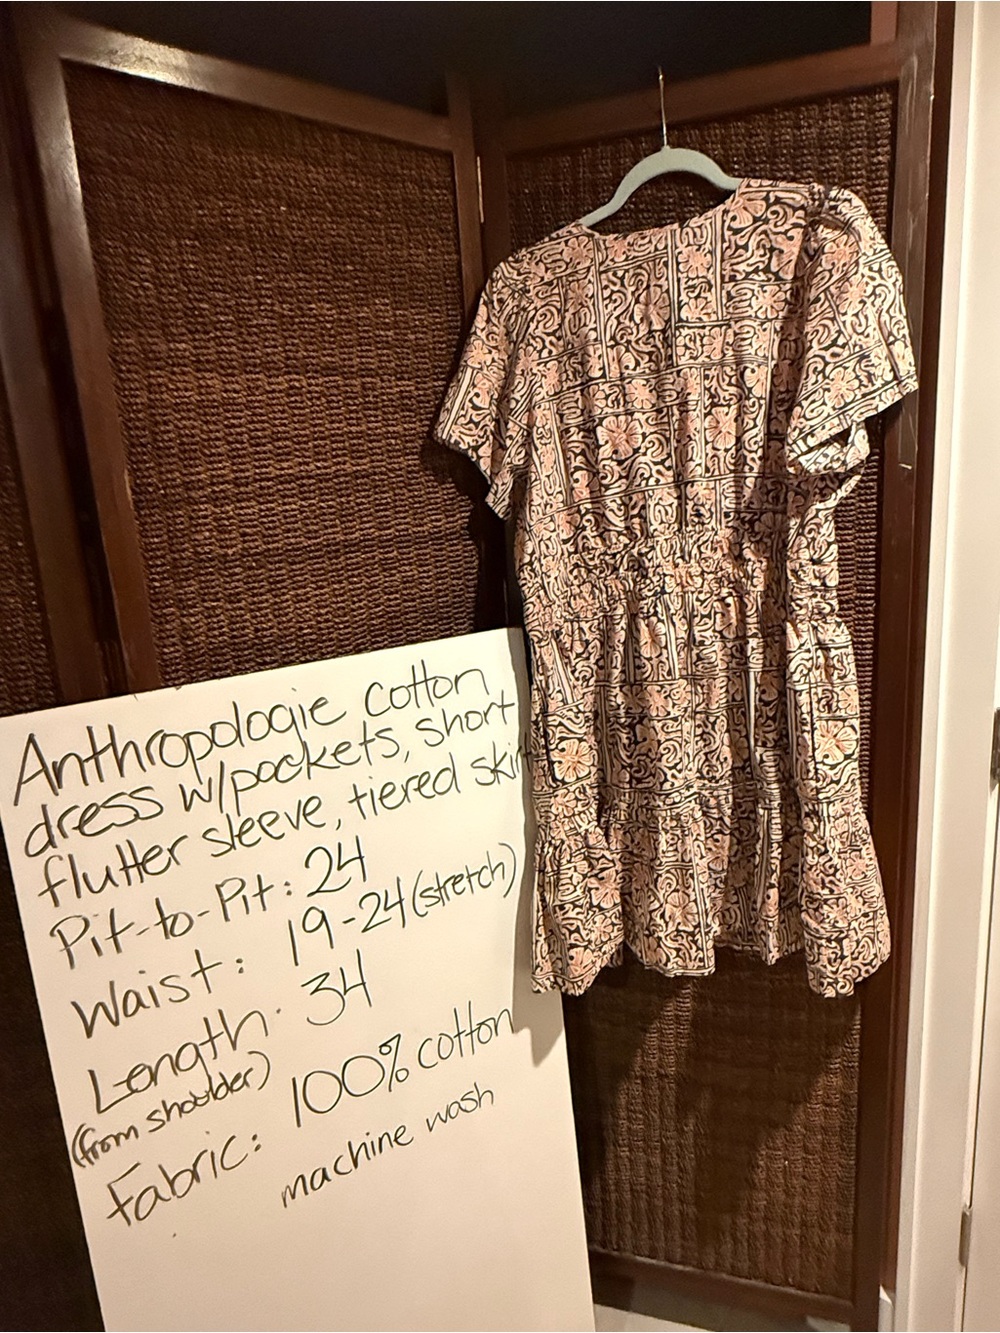 Anthropologie cotton
dress w/pockets, short
flutter sleeve, tiered
Pit-to-Pit: 24
Waist: 19-24 (stretch)
Length: 34
(from shoulder)
Fabric: 100% cotton
machine wash